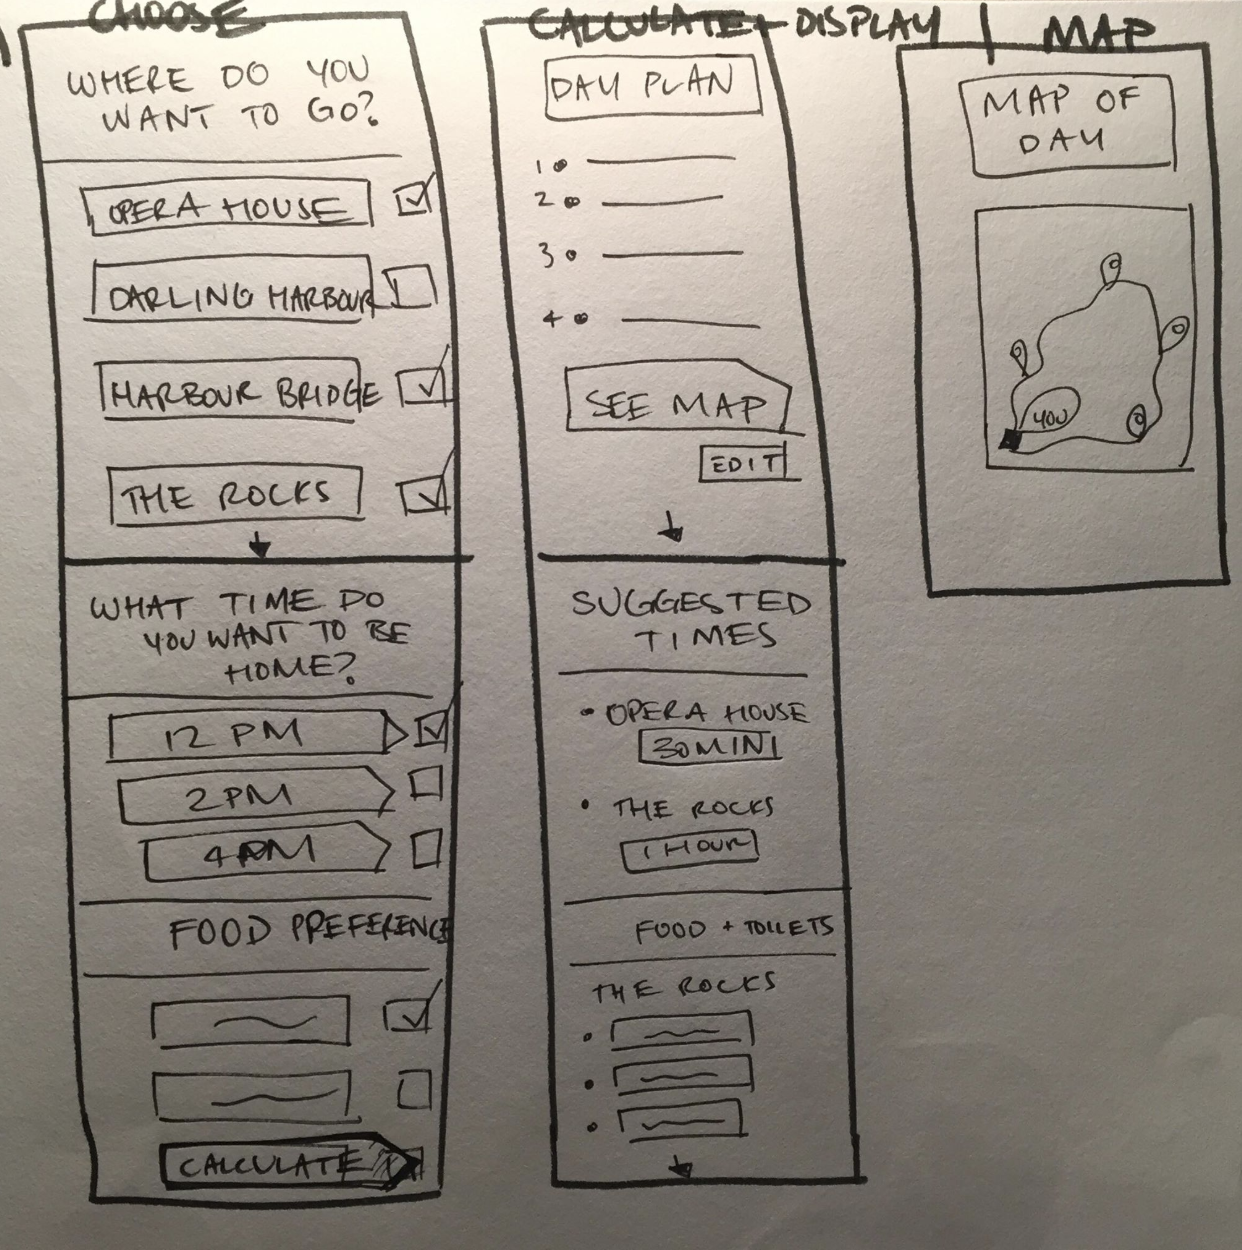 CHOOSE
WHERE DO YOU
WANT TO GO?
OPERA HOUSE
DARLING HARBOUR
HARBOUR BRIDGE
THE ROCKS
WHAT TIME DO
YOU WANT TO BE
HOME?
12 PM
2PM
4PM
FOOD PREFERENCE
CALCULATE
CALCULATE + DISPLAY
DAY PLAN
1
2
3
4
SEE MAP
EDIT
SUGGESTED
TIMES
• OPERA HOUSE
30 MINI
• THE ROCKS
1 HOUR
FOOD + TOILETS
THE ROCKS
MAP
MAP OF
DAY
YOU